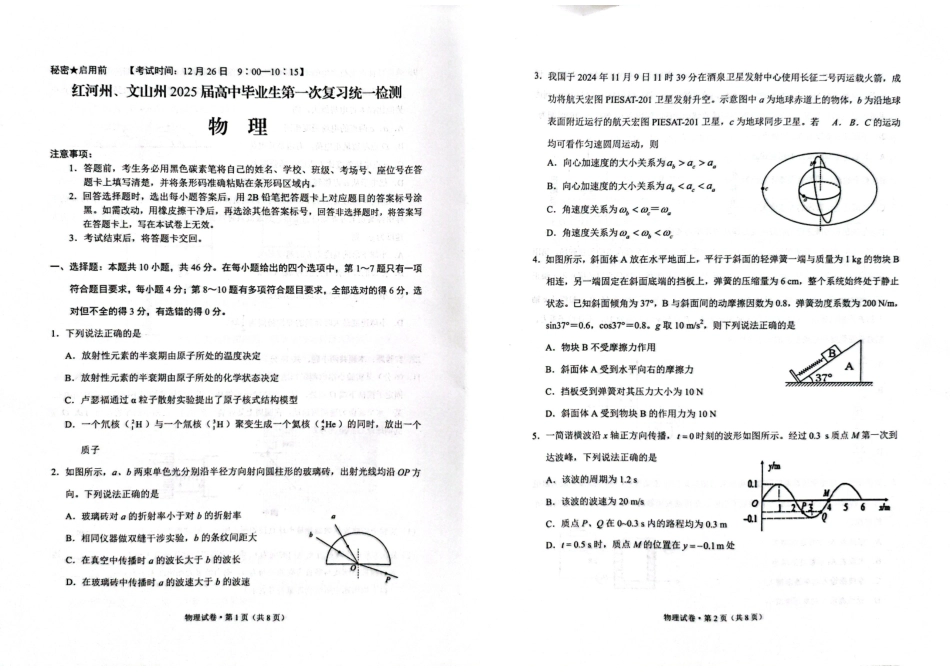 秘密★启用前 【考试时间：12月26日 9：00—10：15】
红河州、文山州2025届高中毕业生第一次复习统一检测
物 理
注意事项：
1．答题前，考生务必用黑色碳素笔将自己的姓名、学校、班级、考场号、座位号在答
题卡上填写清楚，并将条形码准确粘贴在条形码区域内。
2．回答选择题时，选出每小题答案后，用2B铅笔把答题卡上对应题目的答案标号涂
黑。如需改动，用橡皮擦干净后，再选涂其他答案标号，回答非选择题时，将答案写
在答题卡上，写在本试卷上无效。
3．考试结束后，将答题卡交回。
一、选择题：本题共10小题，共46分。在每小题给出的四个选项中，第1～7题只有一项
符合题目要求，每小题4分；第8～10题有多项符合题目要求，全部选对的得6分，选
对但不全的得3分，有选错的得0分。
1．下列说法正确的是
A．放射性元素的半衰期由原子所处的温度决定
B．放射性元素的半衰期由原子所处的化学状态决定
C．卢瑟福通过α粒子散射实验提出了原子核式结构模型
D．一个氘核（²₁H）与一个氚核（³₁H）聚变生成一个氦核（⁴₂He）的同时，放出一个
质子
2．如图所示，a、b两束单色光分别沿半径方向射向圆柱形的玻璃砖，出射光线均沿OP方
向。下列说法正确的是
A．玻璃砖对a的折射率小于对b的折射率
B．相同仪器做双缝干涉实验，b的条纹间距大
C．在真空中传播时a的波长大于b的波长
D．在玻璃砖中传播时a的波速大于b的波速
a
b
O
P
物理试卷·第1页（共8页）
3．我国于2024年11月9日11时39分在酒泉卫星发射中心使用长征二号丙运载火箭，成
功将航天宏图PIESAT-201卫星发射升空。示意图中a为地球赤道上的物体，b为沿地球
表面附近运行的航天宏图PIESAT-201卫星，c为地球同步卫星。若 A．B．C的运动
均可看作匀速圆周运动，则
A．向心加速度的大小关系为a_b＞a_c＞a_a
B．向心加速度的大小关系为a_b＜a_c＜a_a
C．角速度关系为ω_b＜ω_c＝ω_a
D．角速度关系为ω_a＜ω_b＜ω_c
4．如图所示，斜面体A放在水平地面上，平行于斜面的轻弹簧一端与质量为1 kg的物块B
相连，另一端固定在斜面底端的挡板上，弹簧的压缩量为6 cm，整个系统始终处于静止
状态。已知斜面倾角为37°，B与斜面间的动摩擦因数为0.8，弹簧劲度系数为200 N/m，
sin37°＝0.6，cos37°＝0.8。g取10 m/s²，则下列说法正确的是
A．物块B不受摩擦力作用
B．斜面体A受到水平向右的摩擦力
C．挡板受到弹簧对其压力大小为10 N
D．斜面体A受到物块B的作用力为10 N
B
A
37°
5．一简谐横波沿x轴正方向传播，t＝0时刻的波形如图所示。经过0.3 s质点M第一次到
达波峰，下列说法正确的是
A．该波的周期为1.2 s
B．该波的波速为20 m/s
C．质点P、Q在0~0.3 s内的路程均为0.3 m
D．t＝0.5 s时，质点M的位置在y＝−0.1m处
y/m
0.1
O
-0.1
1 2 P 3 4 5 6 x/m
M
Q
物理试卷·第2页（共8页）